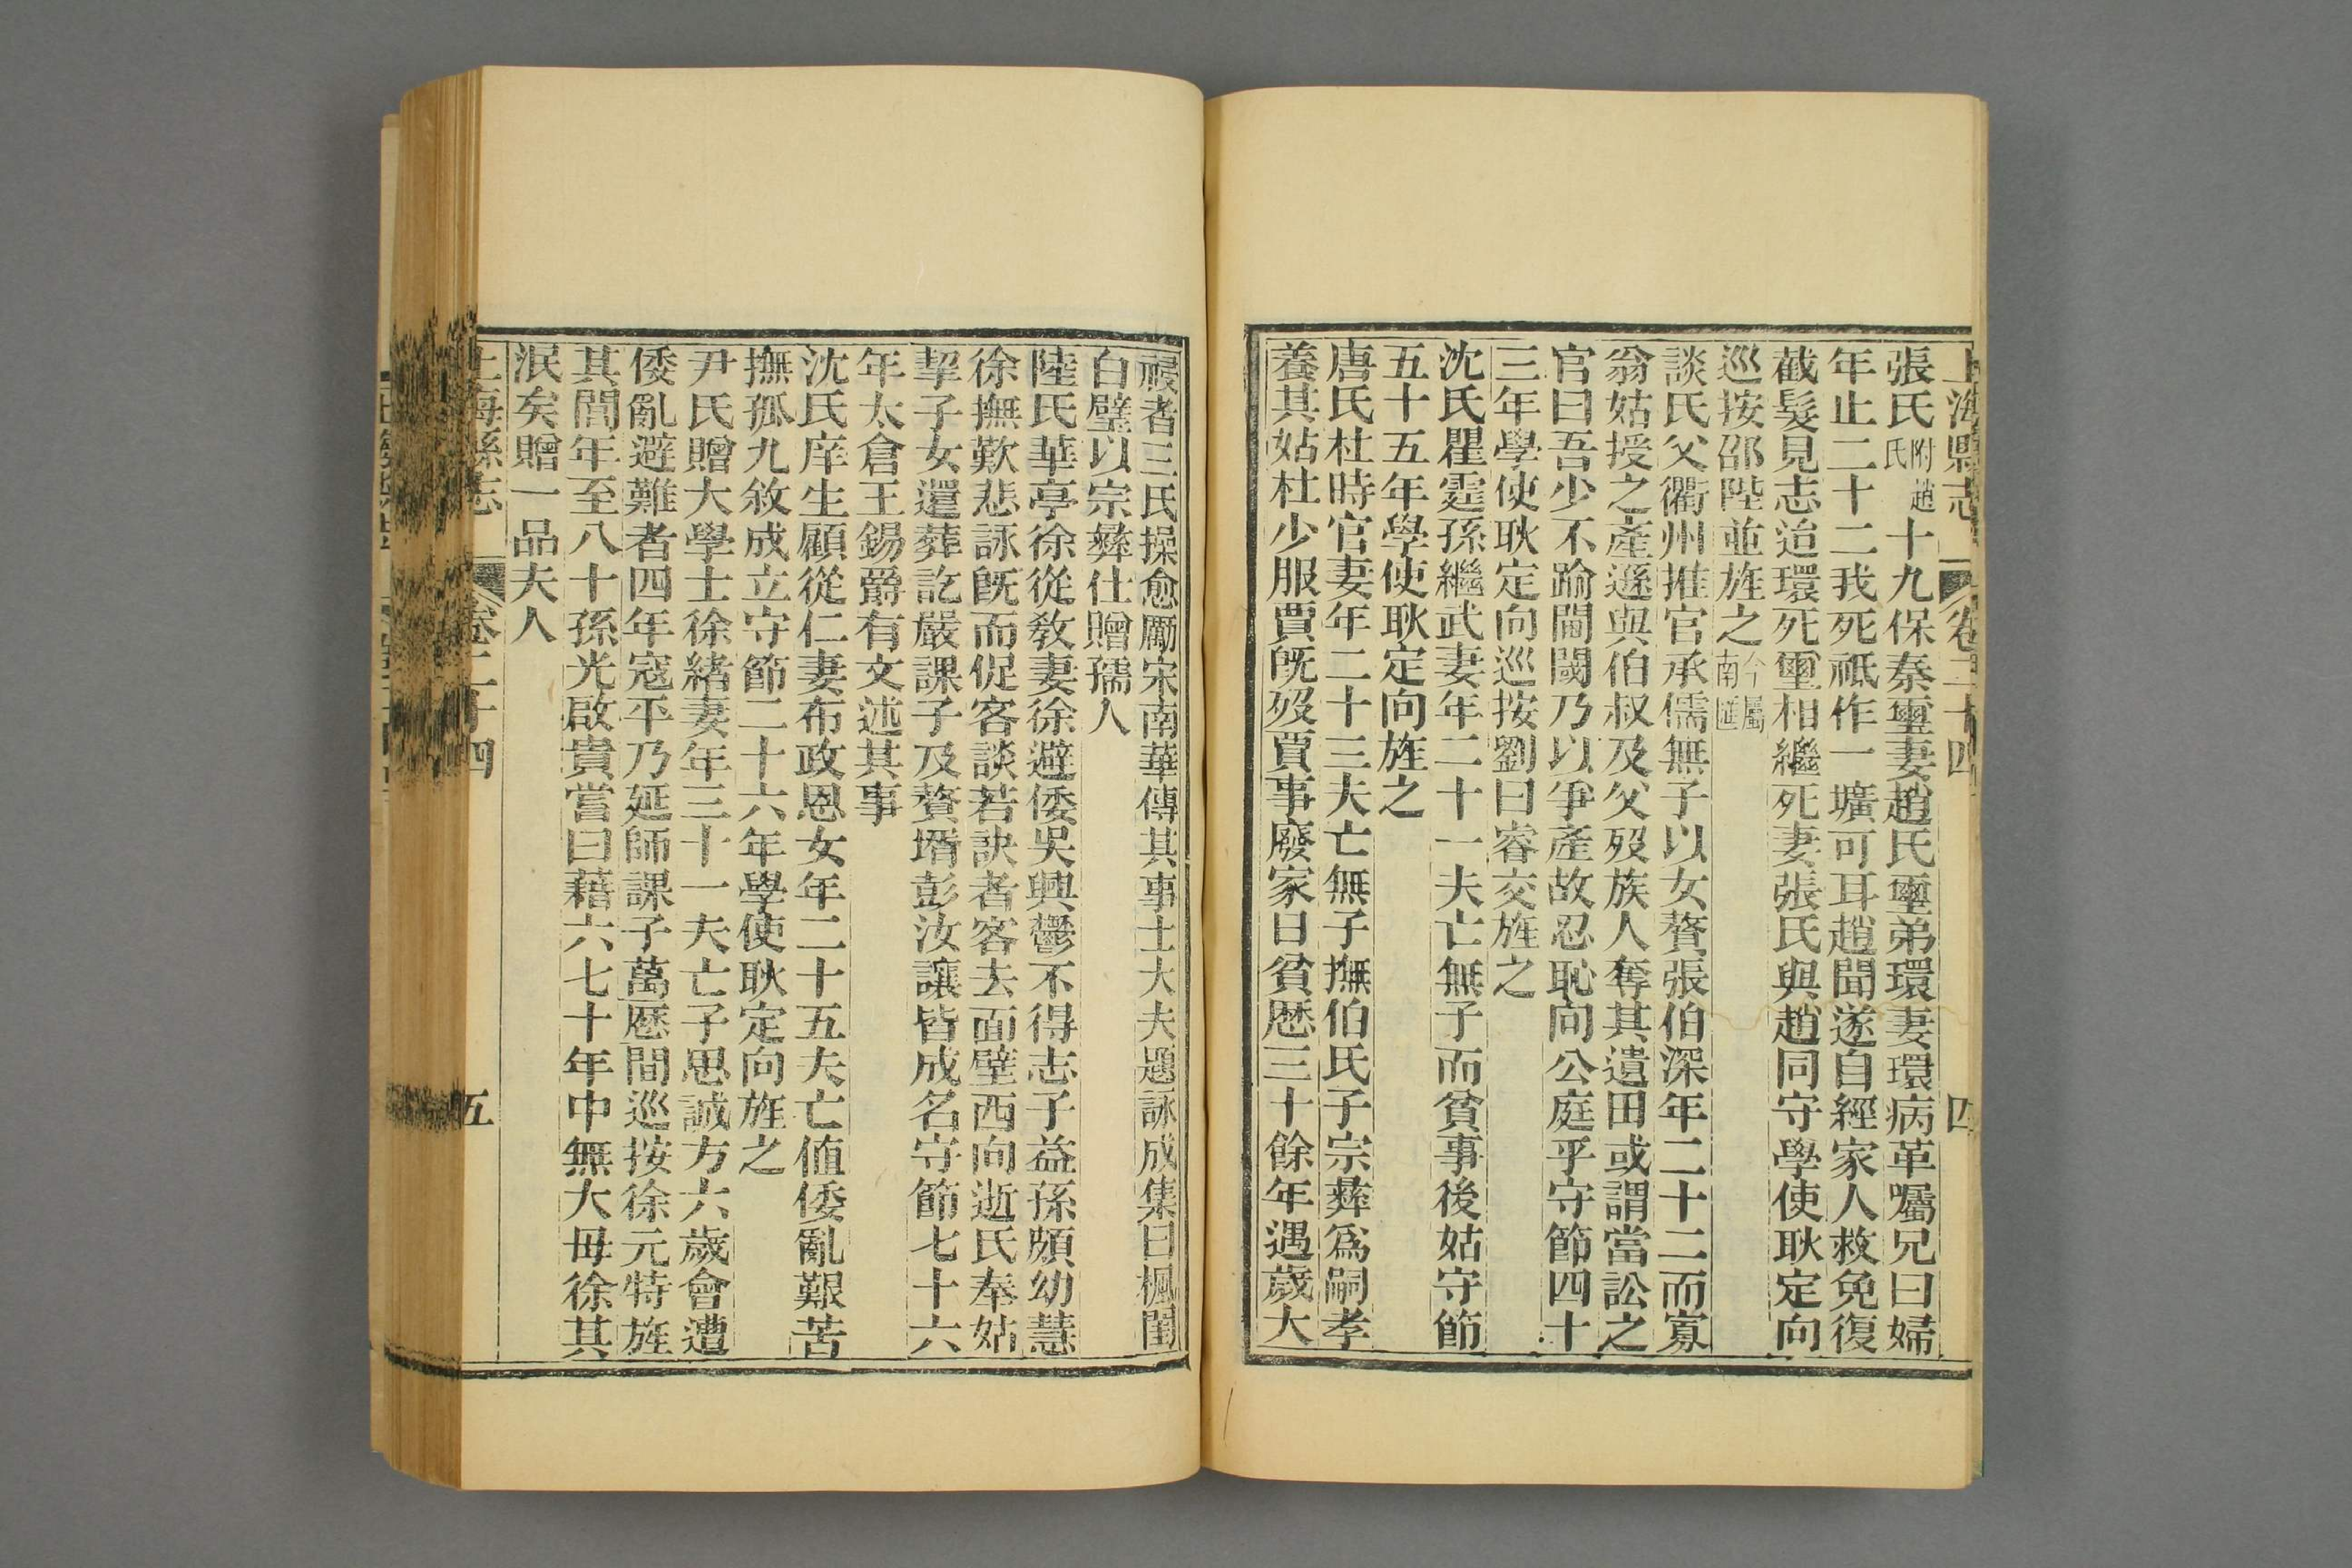 上海縣志 卷二十四 四
張氏附趙氏十九保秦璽妻趙氏璽弟環妻環病革囑兄曰婦
年止二十二我死祇作一壙可耳趙聞遂自經家人救免復
截髮見志迨環死璽相繼死妻張氏與趙同守學使耿定向
巡按邵陛並旌之今屬南匯
談氏父衢州推官承儒無子以女贅張伯深年二十二而寡
翁姑授之產遜與伯叔及父歿族人奪其遺田或謂當訟之
官曰吾少不踰閫閾乃以爭產故忍恥向公庭乎守節四十
三年學使耿定向巡按劉曰睿交旌之
沈氏瞿霆孫繼武妻年二十一夫亡無子而貧事後姑守節
五十五年學使耿定向旌之
唐氏杜時官妻年二十三夫亡無子撫伯氏子宗彝爲嗣孝
養其姑杜少服賈旣歿賈事廢家日貧歷三十餘年遇歲大
祲者三氏操愈勵宋南華傳其事士大夫題詠成集曰楓閨
白璧以宗彝仕贈孺人
陸氏華亭徐從敎妻徐避倭吳興鬱不得志子益孫頗幼慧
徐撫歎悲詠旣而促客談若訣者客去面壁西向逝氏奉姑
挈子女還葬訖嚴課子及贅壻彭汝讓皆成名守節七十六
年太倉王錫爵有文述其事
沈氏庠生顧從仁妻布政恩女年二十五夫亡値倭亂艱苦
撫孤九敘成立守節二十六年學使耿定向旌之
尹氏贈大學士徐緒妻年三十一夫亡子思誠方六歲會遭
倭亂避難者四年寇平乃延師課子萬歷間巡按徐元特旌
其閭年至八十孫光啟貴嘗曰藉六七十年中無大母徐其
泯矣贈一品夫人
上海縣志 卷二十四 五